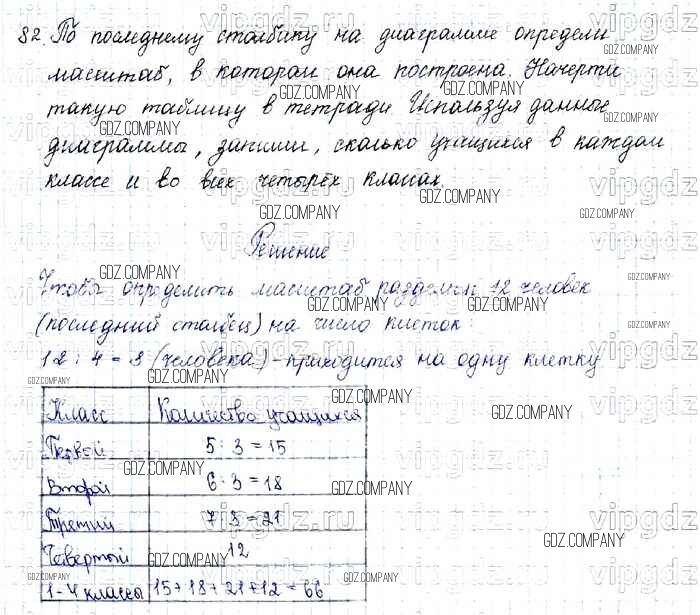 82. По последнему столбику на диаграмме определи
масштаб, в котором она построена. Начерти
такую таблицу в тетради. Используя данные
диаграммы, запиши, сколько учащихся в каждом
классе и во всех четырёх классах.
Решение
Чтобы определить масштаб разделим 12 человек
(последний столбец) на число клеток:
12 : 4 = 3 (человека) - приходится на одну клетку
Класс Количество учащихся
Первый 5 · 3 = 15
Второй 6 · 3 = 18
Третий 7 · 3 = 21
Четвертый 12
1-4 классы 15+18+21+12=66
vipgdz.ru
GDZ.COMPANY